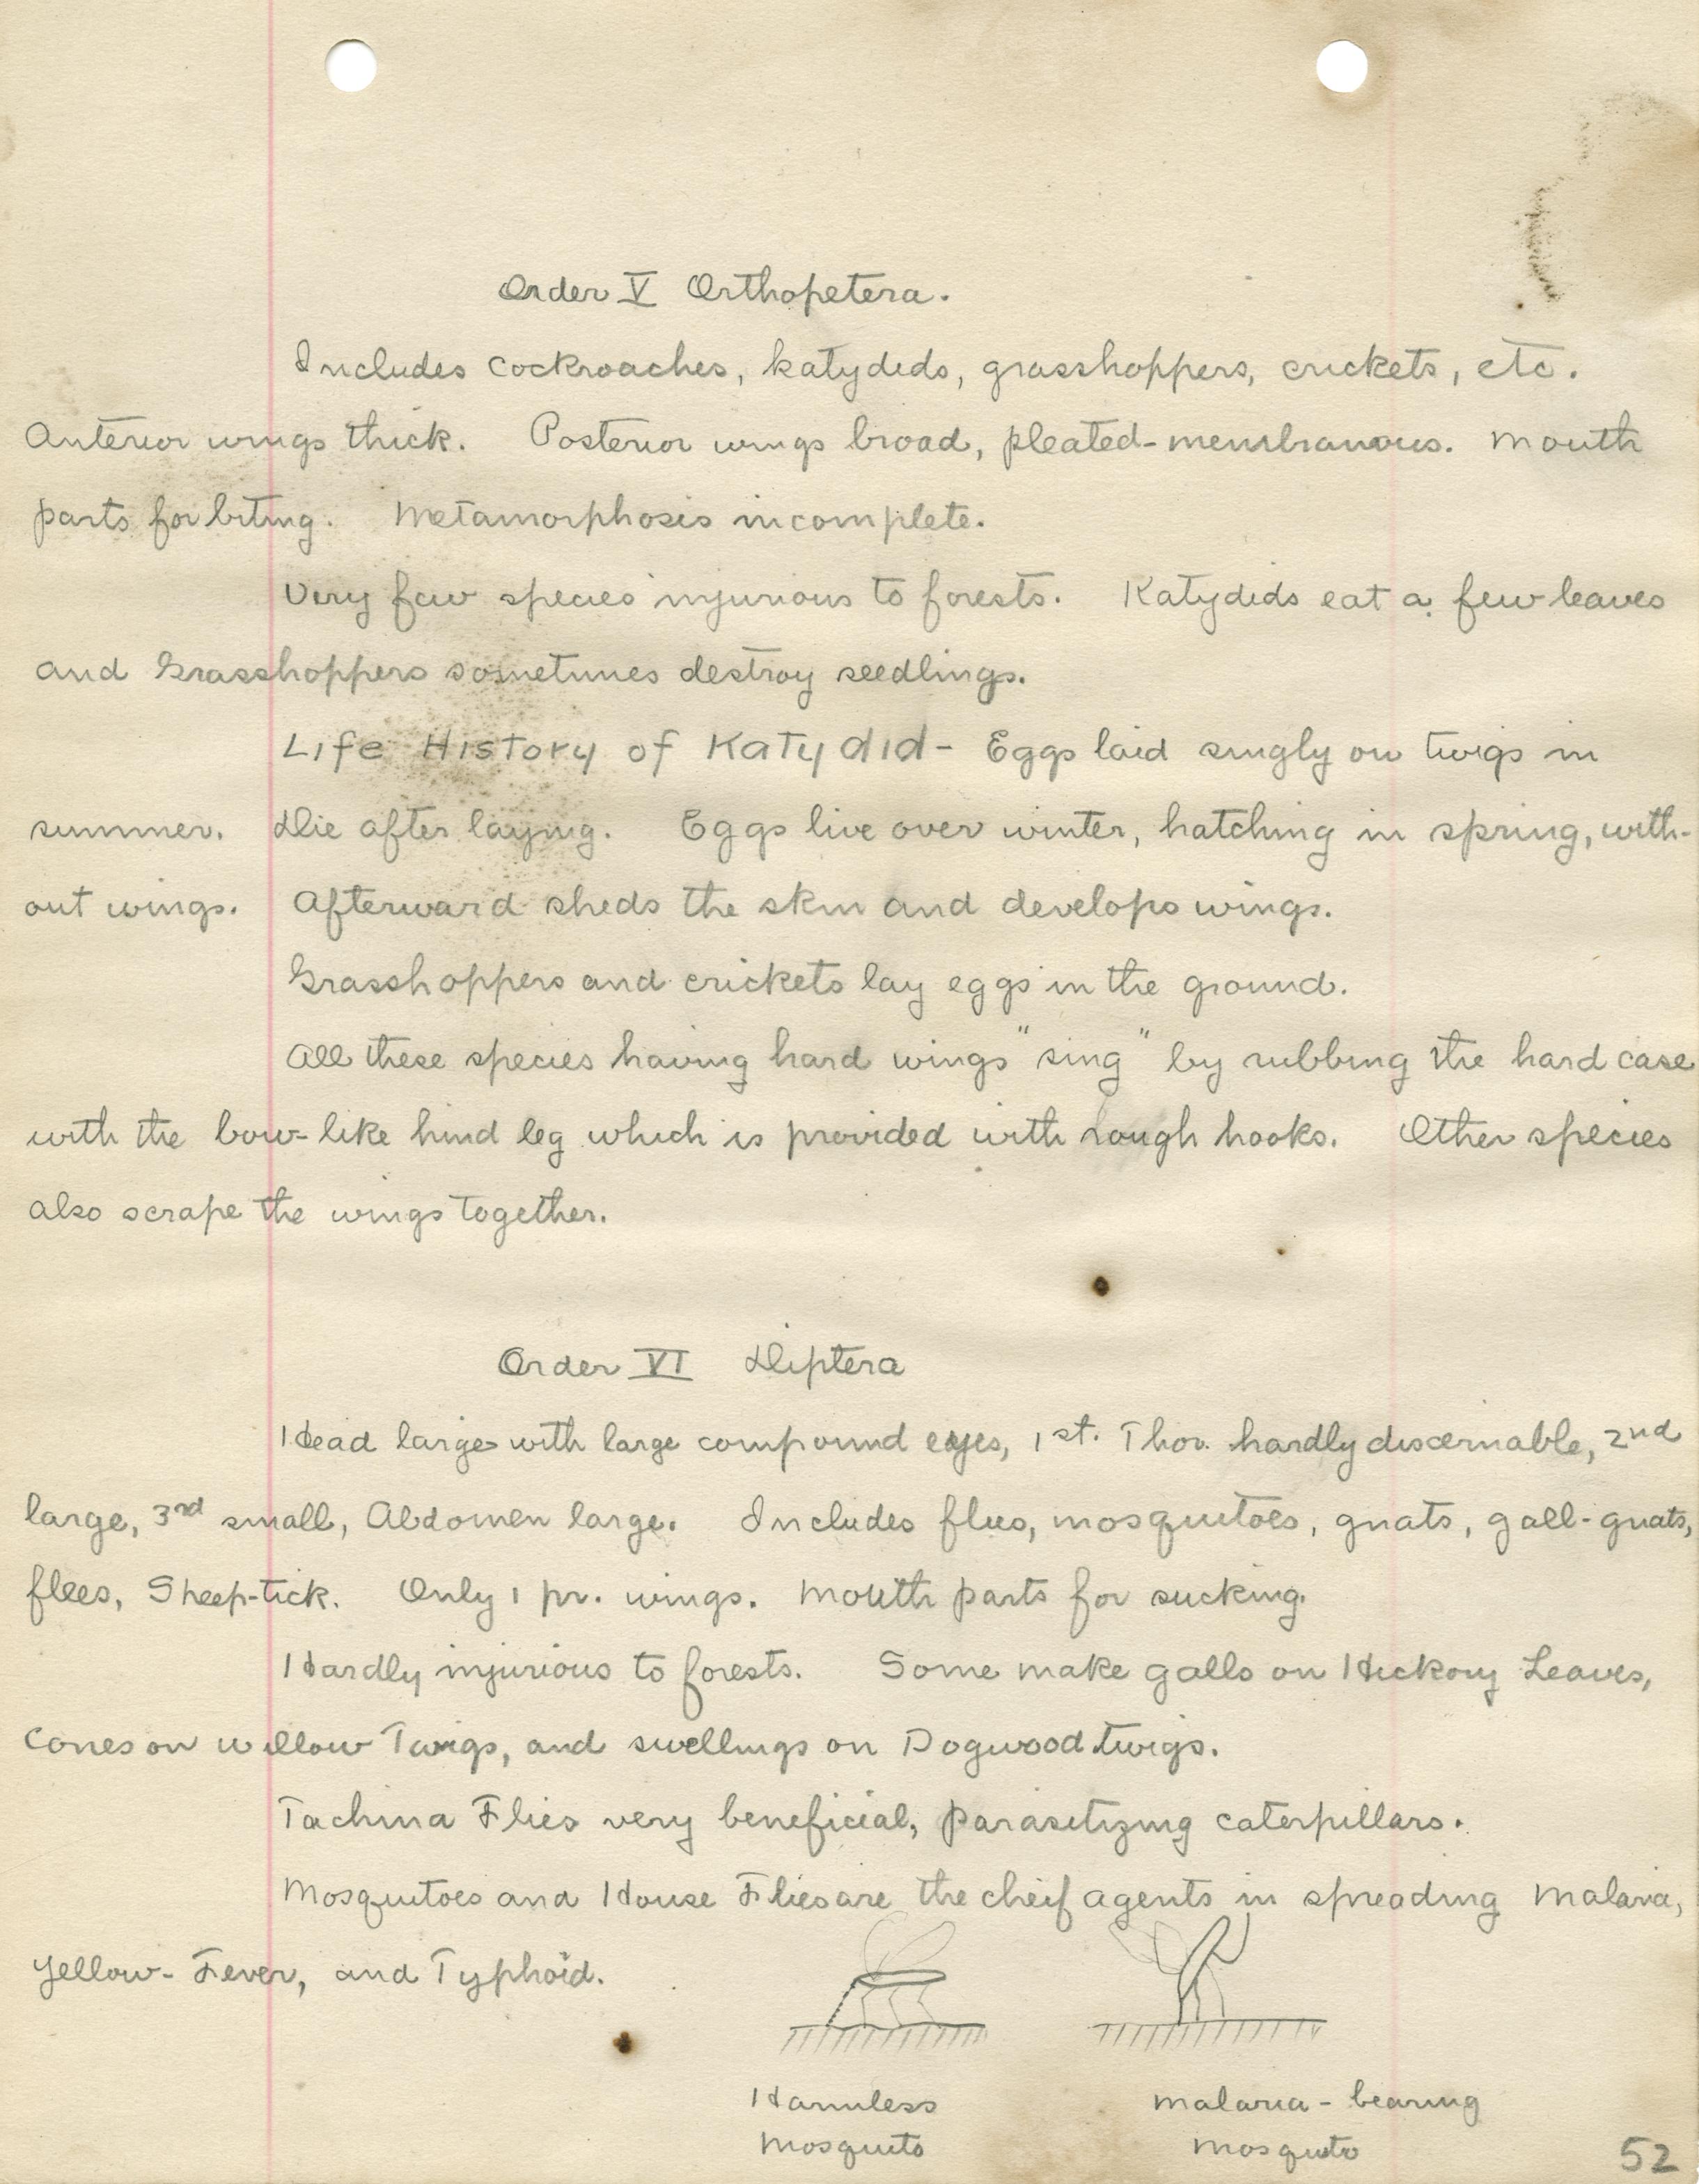 Order V Orthopetera.
Includes cockroaches, katydids, grasshoppers, crickets, etc.
Anterior wings thick. Posterior wings broad, pleated-membranous. Mouth
parts for biting. Metamorphosis incomplete.
Very few species injurious to forests. Katydids eat a few leaves
and Grasshoppers sometimes destroy seedlings.
Life History of Katydid - Eggs laid singly on twigs in
summer. Die after laying. Eggs live over winter, hatching in spring, with-
out wings. Afterward sheds the skin and develops wings.
Grasshoppers and crickets lay eggs in the ground.
All these species having hard wings "sing" by rubbing the hard case
with the bow-like hind leg which is provided with rough hooks. Other species
also scrape the wings together.
Order VI Diptera
Head large with large compound eyes, 1st. Thor. hardly discernable, 2nd
large, 3rd small, Abdomen large. Includes flies, mosquitoes, gnats, gall-gnats,
flees, Sheep-tick. Only 1 pr. wings. Mouth parts for sucking.
Hardly injurious to forests. Some make galls on Hickory Leaves,
Cones on willow Twigs, and swellings on Dogwood twigs.
Tachina Flies very beneficial, parasitizing caterpillars.
Mosquitoes and House Flies are the cheif agents in spreading Malaria,
Yellow-Fever, and Typhoid.
Harmless malaria-bearing
Mosquito Mosquito
52